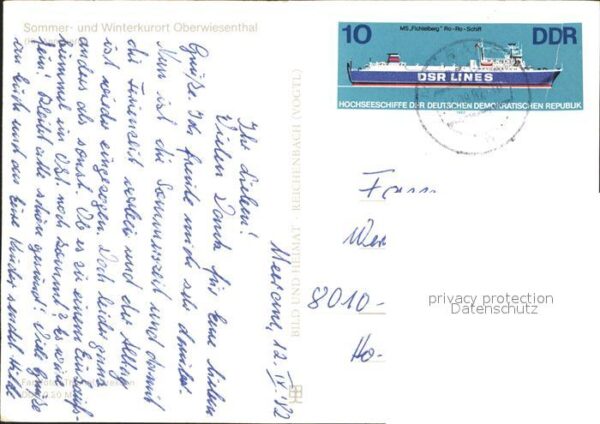 Sommer- und Winterkurort Oberwiesenthal
Meerane, 12. IX. 82
Ihr Lieben!
Vielen Dank für Eure lieben
Grüße. Ich freute mich sehr darüber.
Nun ist die Sommerzeit und damit
die Ferienzeit vorbei und der Alltag
ist wieder eingezogen. Doch leider ging
anders als sonst. Ob es zu einem Einkaufs-
bummel im Okt. noch kommt? Es wäre
fein! Bleibt alle schön gesund! Viele Grüße
an Euch und die Kinder sendet
BILD UND HEIMAT · REICHENBACH (VOGTL)
MS „Fichtelberg" Ro-Ro-Schiff
10 DDR
DSR LINES
HOCHSEESCHIFFE DER DEUTSCHEN DEMOKRATISCHEN REPUBLIK
1982
Fam
Wer
8010-
Ho-
privacy protection
Datenschutz